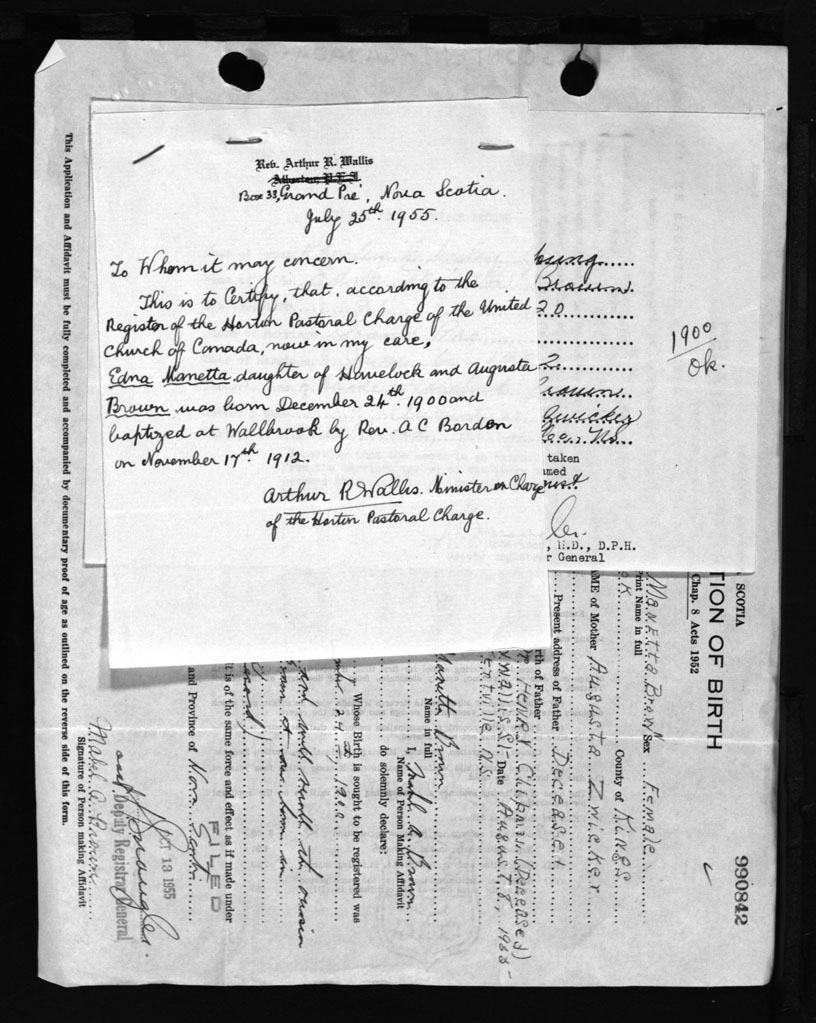 Rev. Arthur R. Wallis
Alberton, P.E.I.
Box 33, Grand Pré, Nova Scotia.
July 25th 1955.
To Whom it may concern.
This is to Certify, that, according to the
Register of the Horton Pastoral Charge of the United
Church of Canada, now in my care,
Edna Manetta daughter of Havelock and Augusta
Brown was born December 24th. 1900 and
baptized at Wallbrook by Rev. A C Borden
on November 17th 1912.
Arthur R Wallis. Minister in Charge
of the Horton Pastoral Charge.
Brown
20
2
taken
med
, M.D., D.P.H.
General
1900
Ok.
SCOTIA
Chap. 8 Acts 1952
TION OF BIRTH
990842
Manetta Brown Sex Female
Print Name in full
County of Kings
AME of Mother Augusta Zwicker
Present address of Father Deceased
rth of Father
Dr. Henry Chipman (Deceased)
Date August 8, 1955
entville N.S.
Manetta Brown
Name in full
I, Mabel A. Brown
Name of Person Making Affidavit
do solemnly declare:
Whose Birth is sought to be registered was
24 1900
it is of the same force and effect as if made under
and Province of Nova Scotia
FILED
OCT 13 1955
Deputy Registrar General
Mabel A. Brown
Signature of Person making Affidavit
This Application and Affidavit must be fully completed and accompanied by documentary proof of age as outlined on the reverse side of this form.